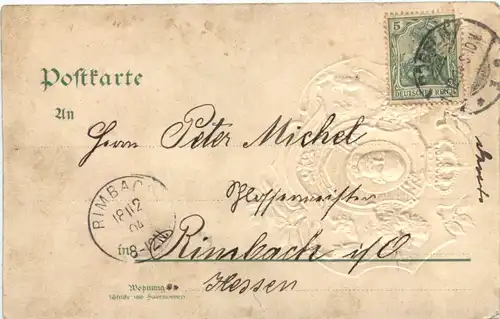 Postkarte
5
DEUTSCHES REICH
An
Herrn Peter Michel
Schlossermeister
in Rimbach i/O
Hessen
RIMBACH
18 12
04
8-12
Wohnung
(Straße und Hausnummer)